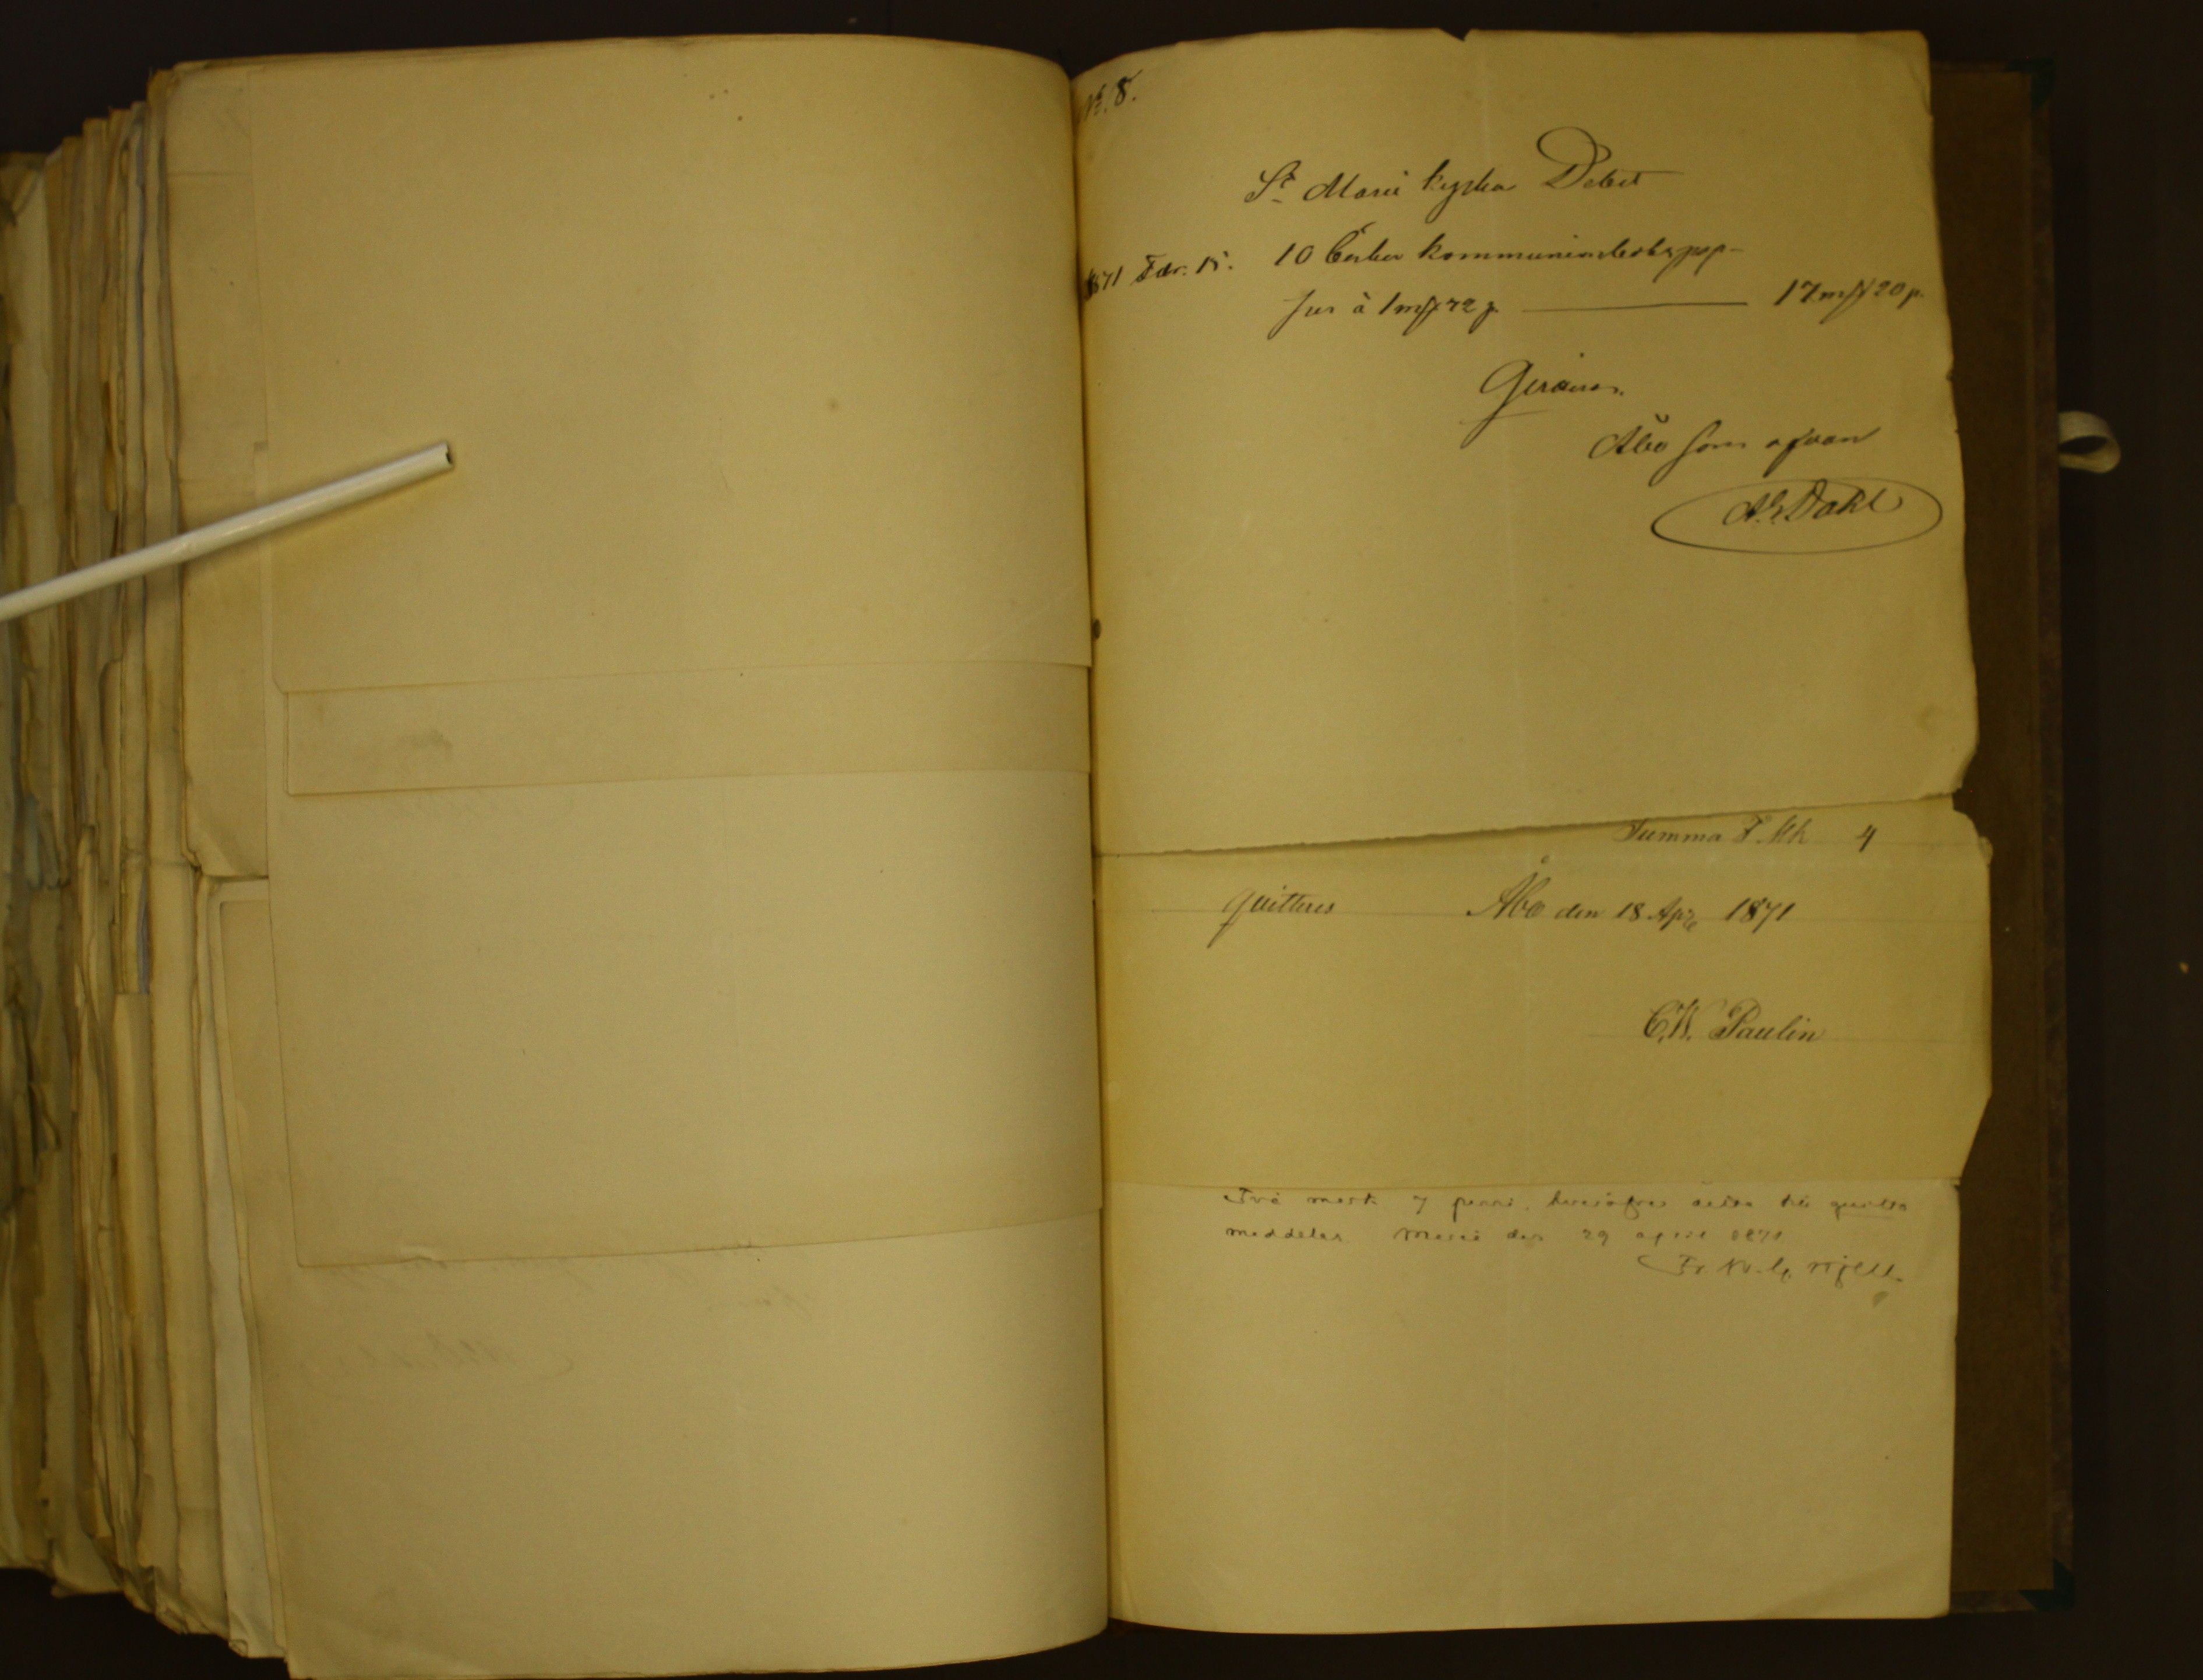 N. 8.
St Marie kyrka Debet
1871 Febr. 15. 10 Böcker kommunionboks pap-
per à 1 mf 72 p. 17 mf 20 p.
Åbo som ofvan
A. L. Dahl
Summa F. Mk 4
quitteres Åbo den 18 Apr 1871
C. W. Paulin
Två mark 7 penni
meddelas Marie den 29 april 1871